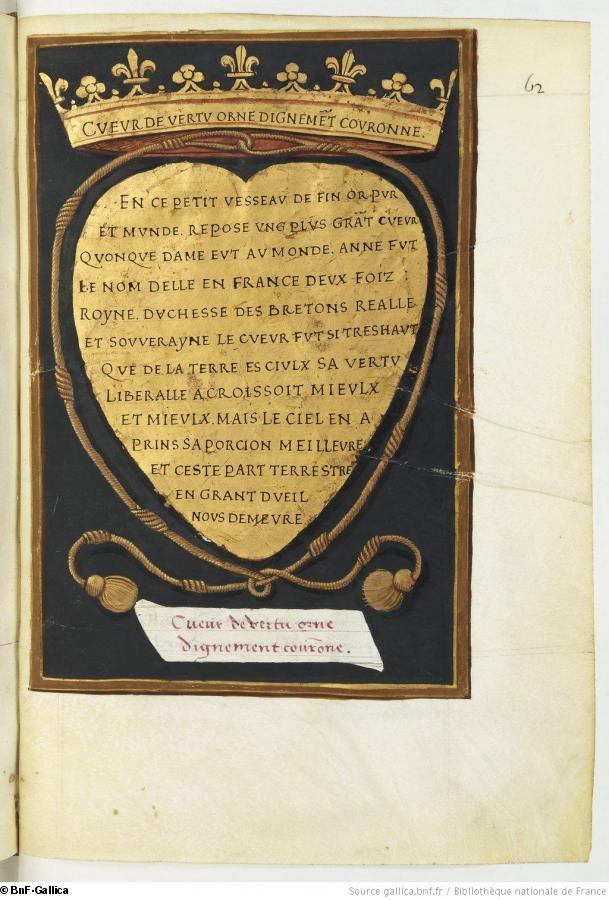 62
CVEVR DE VERTV ORNE DIGNEMET̃ COVRONNE.
EN CE PETIT VESSEAV DE FIN OR PVR
ET MVNDE. REPOSE VNG PLVS GRAT̃ CVEVR
QVONQVE DAME EVT AV MONDE. ANNE FVT
LE NOM DELLE EN FRANCE DEVX FOIZ :
ROYNE. DVCHESSE DES BRETONS REALLE
ET SOVVERAYNE LE CVEVR FVT SI TRESHAVT
QVE DE LA TERRE ES CIVLX SA VERTV
LIBERALLE ACROISSOIT MIEVLX
ET MIEVLX. MAIS LE CIEL EN A
PRINS SA PORCION MEILLEVRE
ET CESTE PART TERRESTRE
EN GRANT DVEIL
NOVS DEMEVRE
Cueur de vertu orne
dignement courõne.
© BnF-Gallica
Source gallica.bnf.fr / Bibliothèque nationale de France